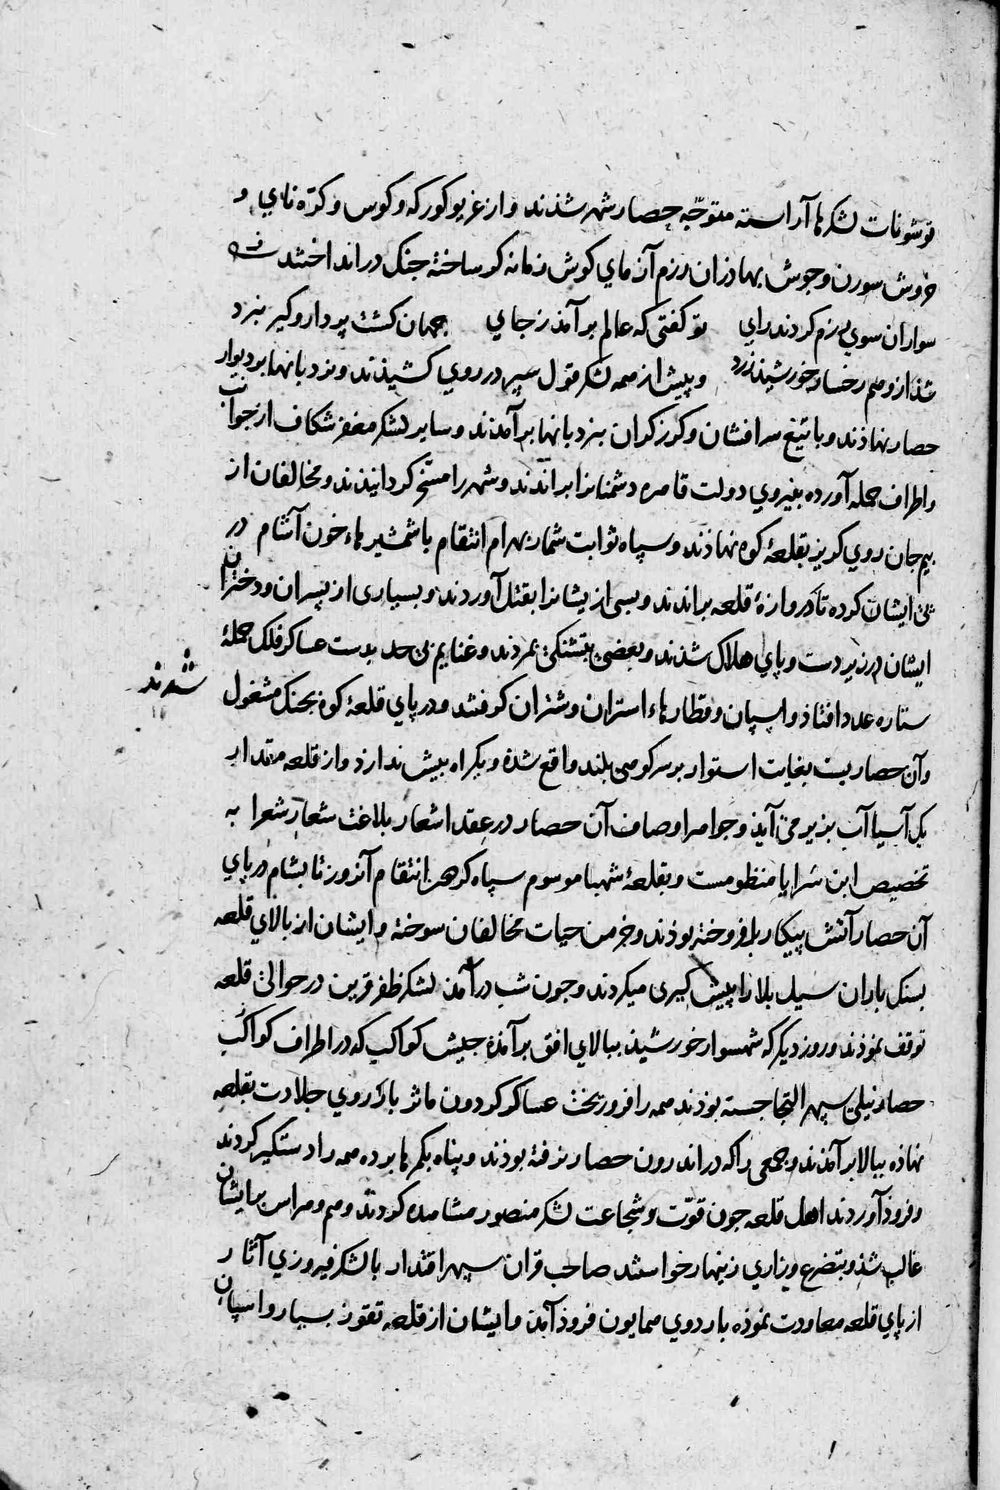 قوشونات لشکرها آراسته متوجّه حصار شهر شذند و از غریو کورکه و کوس و کرّه نای و
خروش سورن و جوش بهاذران رزم آزمای کوش زمانه کر ساختهٔ جنک در انداختند
سواران سوی رزم کردند رای تو کفتی که عالم برآمذ ز جای جهان کشت پر دار و کیر نبرد
شذ از وهم رخسار خورشیذ زرد و پیش از همه لشکر قول سپر در روی کشیذند و نردبانها بر دیوار
حصار نهاذند و با تیغ سرافشان و کرز کران بنردبانها برآمذند و سایر لشکر مغفر شکاف از جوانب
و اطراف حمله آورده بنیروی دولت قاهره دشمنانرا براندند و شهر را مسخّر کردانیذند و مخالفان از
بیم جان روی کریز بقلعهٔ کوه نهاذند و سپاه ثوابت شمار بهرام انتقام با شمشیرهاء خون آشام در
پی ایشان کرده تا دروازهٔ قلعه براندند و بسی از یشانرا بقتل آوردند و بسیاری از پسران و دختران
ایشان در زیر دست و پای هلاک شذند و بعضی بتشنکی بمردند و غنایم بی حد بدست عساکر فلک حملهٔ
ستاره عدد افتاذ و اسپان و قطارهاء استران و شتران کرفتند و در پای قلعهٔ کوه بجنک مشغول
شدند
و آن حصاریست بغایت استوار بر سر کوهی بلند واقع شذه و یکراه بیش ندارذ و از قلعه مقدار
یک آسیا آب بزیر می آیذ و جواهر اوصاف آن حصار در عقد اشعار بلاغت شعار شعرا به
تخصیص ابن سرایا منظومست و بقلعهٔ شهبا موسوم سپاه انتقام آنروز تا بشام در پای
آن حصار آتش پیکار بر افروخته بوذند و خرمن حیات مخالفان سوخته و ایشان از بالای قلعه
بسنک باران سیل بلا را پیش کیری میکردند و جون شب درآمذ لشکر ظفر قرین در حوالی قلعه
توقف نموذند و روز دیکر که شهسوار خورشیذ ببالای افق برآمذه جیش کواکب که در اطراف کواکب
حصار نیلی سپهر التجا جسته بوذند همه را فرو ریخت عساکر کردون مآثر باز روی جلادت بقلعه
نهاذه ببالا برآمذند و جمعی را که در اندرون حصار نرفته بوذند و پناه بکمرها برده همه را دستکیر کردند
و فروذ آوردند اهل قلعه جون قوّت و شجاعت لشکر منصور مشاهده کردند وهم و هراس بر ایشان
غالب شذ و بتضرع و زاری زینهار خواستند صاحب قران سپهر اقتدار با لشکر فیروزی آثار
از پای قلعه معاودت نموذه باردوی همایون فروذ آمذ و ایشان از قلعه تقوز بسیار و اسپان